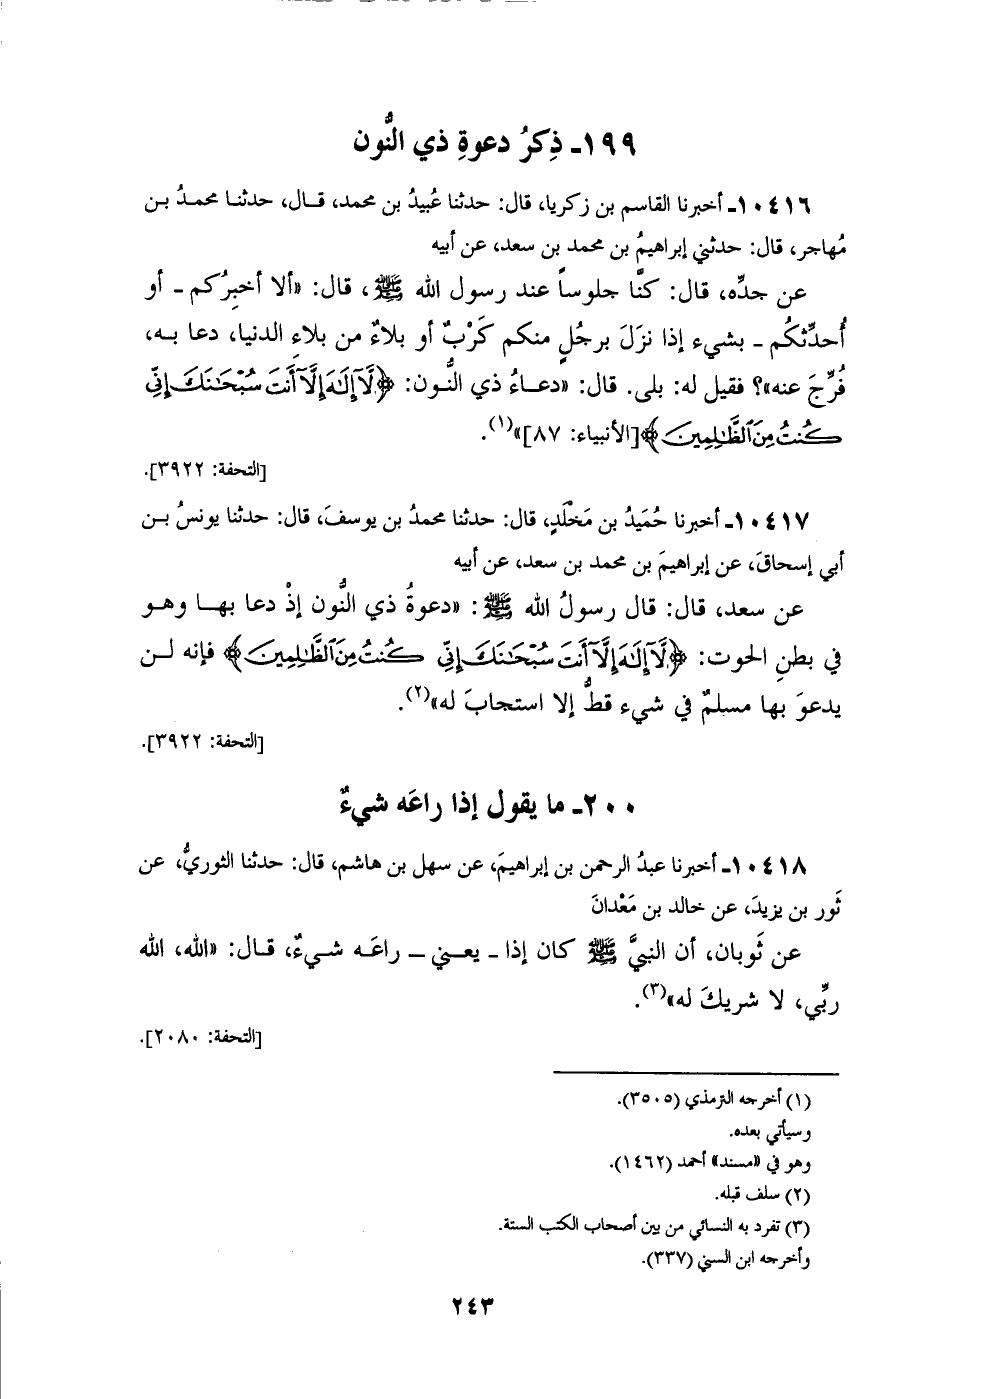 ١٩٩ـ ذِكرُ دعوةِ ذي النُّون
١٠٤١٦ـ أخبرنا القاسم بن زكريا، قال: حدثنا عُبيدُ بن محمد، قـال، حدثنـا محمـدُ بـن
مُهاجر، قال: حدثني إبراهيمُ بن محمد بن سعد، عن أبيه
عن جدِّه، قال: كنَّا جلوساً عند رسول الله ﷺ، قال: «ألا أخبِرُكم ـ أو
أُحدِّثكُم ـ بشيء إذا نزَلَ برجُلٍ منكم كَرْبٌ أو بلاءٌ من بلاءِ الدنيا، دعا بـه،
فُرِّجَ عنه»؟ فقيل له: بلى. قال: «دعـاءُ ذي النُّون: ﴿لَّآ إِلَٰهَ إِلَّآ أَنتَ سُبْحَٰنَكَ إِنِّي
كُنتُ مِنَ ٱلظَّٰلِمِينَ﴾[الأنبياء: ٨٧]»(١).
[التحفة: ٣٩٢٢].
١٠٤١٧ـ أخبرنا حُمَيدُ بن مَخْلَدٍ، قال: حدثنا محمدُ بن يوسفَ، قال: حدثنا يونسُ بـن
أبي إسحاقَ، عن إبراهيمَ بن محمد بن سعد، عن أبيه
عن سعد، قال: قال رسولُ الله ﷺ: «دعوةُ ذي النُّون إذْ دعا بهـا وهـو
في بطنِ الحوت: ﴿لَّآ إِلَٰهَ إِلَّآ أَنتَ سُبْحَٰنَكَ إِنِّي كُنتُ مِنَ ٱلظَّٰلِمِينَ﴾ فإنه لـن
يدعوَ بها مسلمٌ في شيء قطُّ إلا استجابَ له»(٢).
[التحفة: ٣٩٢٢].
٢٠٠ـ ما يقول إذا راعَه شيءٌ
١٠٤١٨ـ أخبرنا عبدُ الرحمن بن إبراهيمَ، عن سهل بن هاشم، قال: حدثنا الثوريُّ، عن
ثَور بن يزيدَ، عن خالد بن مَعْدانَ
عن ثَوبان، أن النبيَّ ﷺ كان إذا ـ يعـني ـ راعَـه شيءٌ، قـال: «الله، الله
ربِّي، لا شريكَ له»(٣).
[التحفة: ٢٠٨٠].
(١) أخرجه الترمذي (٣٥٠٥).
وسيأتي بعده.
وهو في «مسند» أحمد (١٤٦٢).
(٢) سلف قبله.
(٣) تفرد به النسائي من بين أصحاب الكتب الستة.
وأخرجه ابن السني (٣٣٧).
٢٤٣